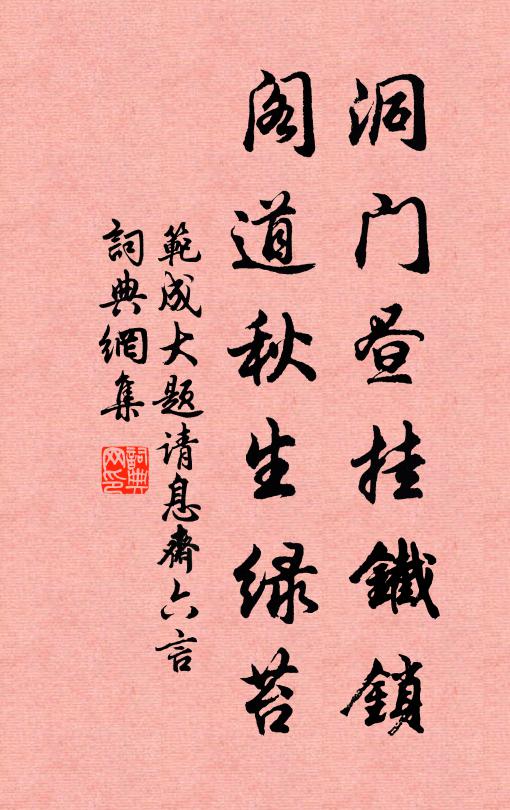 洞门昼挂鐵鎖
阁道秋生绿苔
範成大题请息齋六言
詞典網集
詞典网印